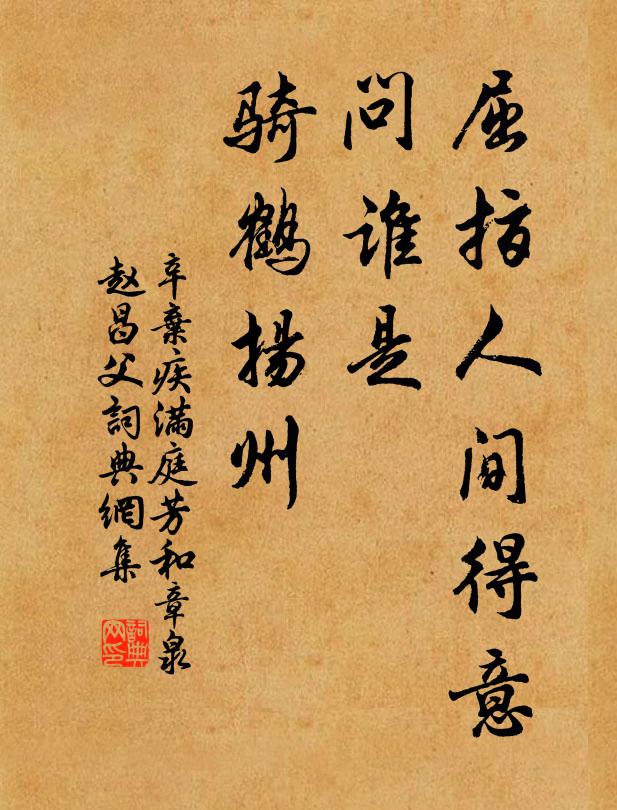 屈指人间得意
问谁是
骑鹤扬州
辛棄疾满庭芳和章泉
赵昌父詞典網集
詞典网印